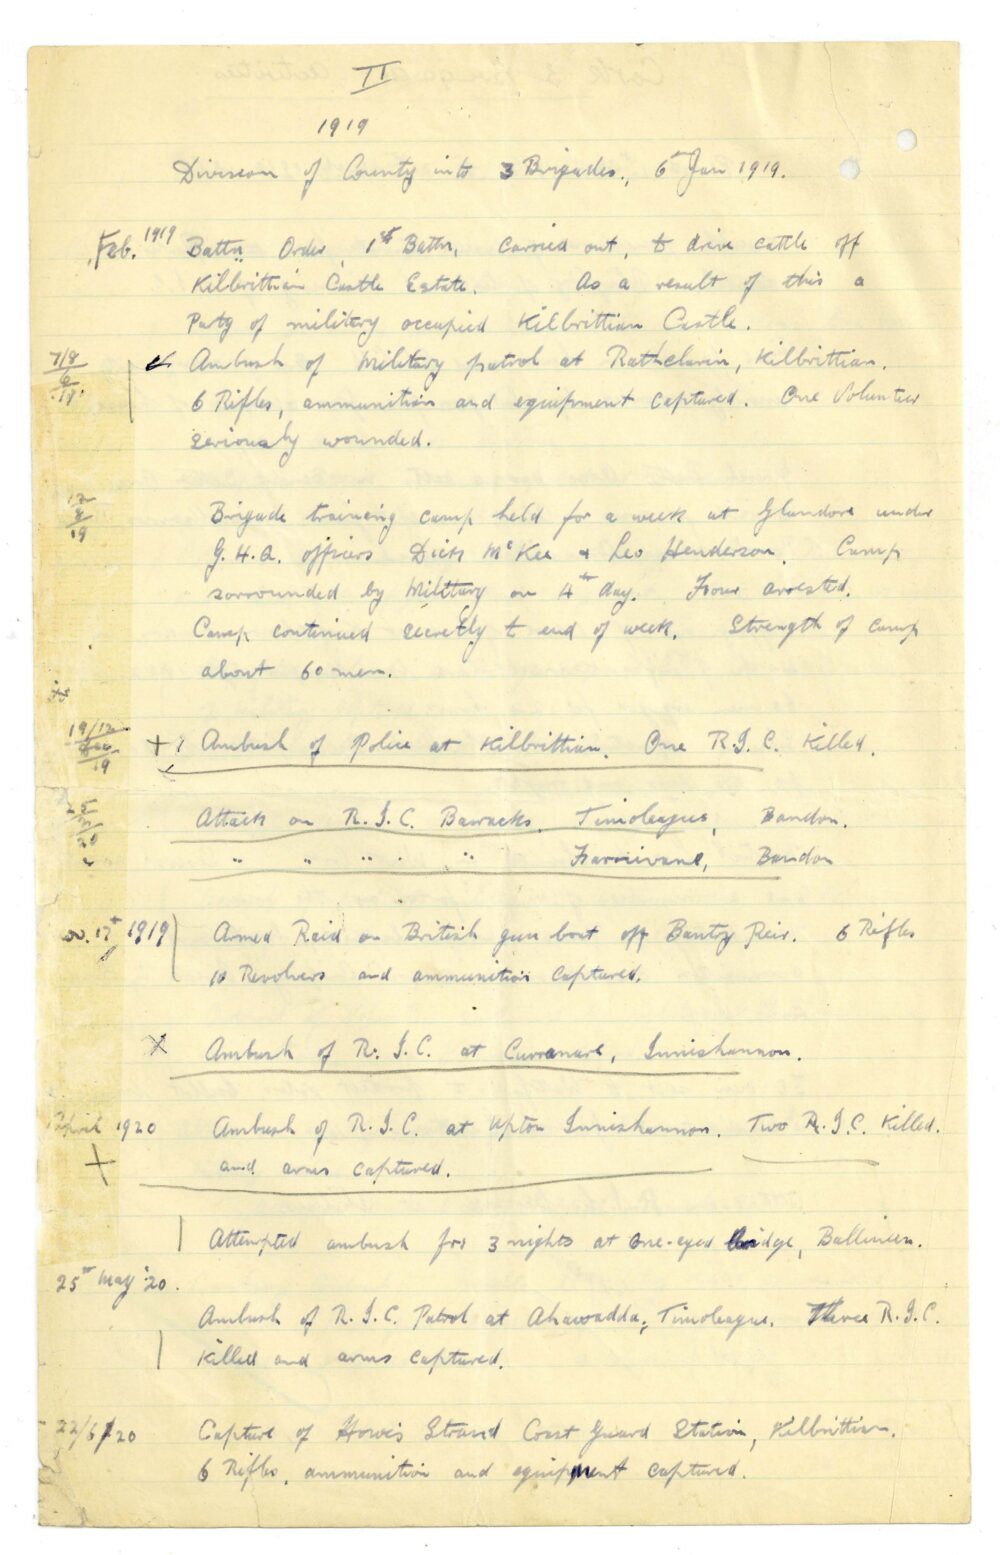 II
1919
Division of County into 3 Brigades., 6th Jan 1919.
Feb. 1919 Battn Order, 1st Battn, carried out, to drive cattle off
Kilbrittian Castle Estate. As a result of this a
Party of military occupied Kilbrittian Castle.
Ambush of Military patrol at Rathclarin, Kilbrittian.
6 Rifles, ammunition and equipment captured. One Volunteer
seriously wounded.
Brigade training camp held for a week at Glandore under
G.H.Q. officers Dick McKee & Leo Henderson. Camp
sorrounded by Military on 4th day. Four arrested.
Camp continued secretly to end of week. Strength of camp
about 60 men.
19/12
19
+ ? Ambush of Police at Kilbrittian. One R.I.C. Killed.
Attack on R.I.C. Barracks, Timoleague, Bandon.
" " " " Farnivane, Bandon
ov. 17th 1919 Armed Raid on British gun boat off Bantry Peir. 6 Rifles
10 Revolvers and ammunition captured.
X Ambush of R.I.C. at Curranure, Innishannon.
April 1920 Ambush of R.I.C. at Upton Innishannon. Two R.I.C. Killed.
+ and arms captured.
Attempted ambush for 3 nights at One-eyed bridge, Ballineen.
25th May '20.
Ambush of R.I.C. Patrol at Ahawadda, Timoleague. Three R.I.C.
Killed and arms captured.
22/6/20 Capture of Howes Strand Coast Guard Station, Kilbrittian.
6 Rifles, ammunition and equipment captured.